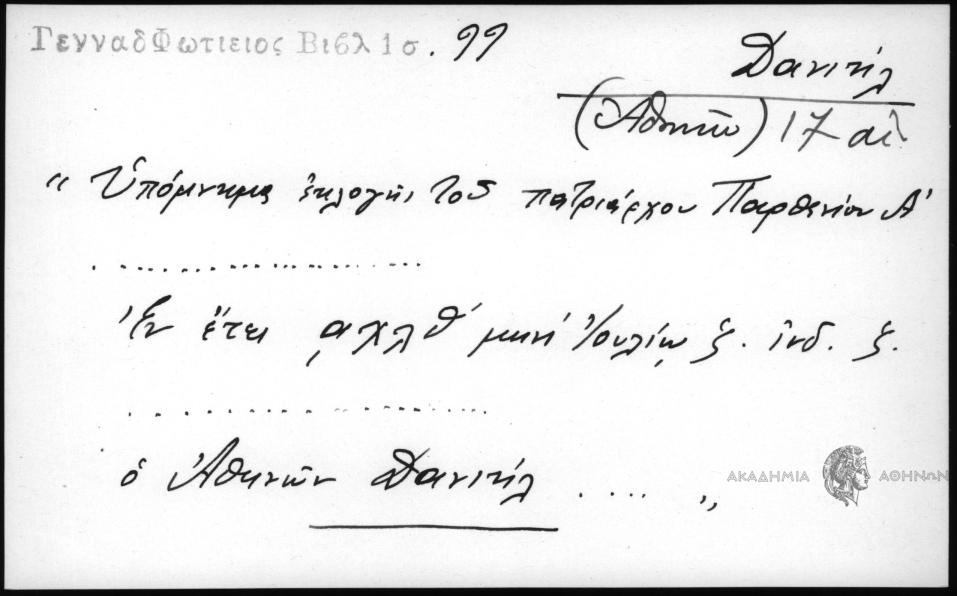 ΓενναδΦωτιειος Βιβλ 1σ. 99
Δανιήλ
(Ἀθηνῶν) 17 αἰ
“ Ὑπόμνημα ἐκλογῆς τοῦ πατριάρχου Παρθενίου Α'
....................
Ἐν ἔτει ͵αχλθ' μηνὶ Ἰουλίῳ ζ. ἰνδ. ζ.
....................
ὁ Ἀθηνῶν Δανιήλ .... „
ΑΚΑΔΗΜΙΑ ΑΘΗΝΩΝ